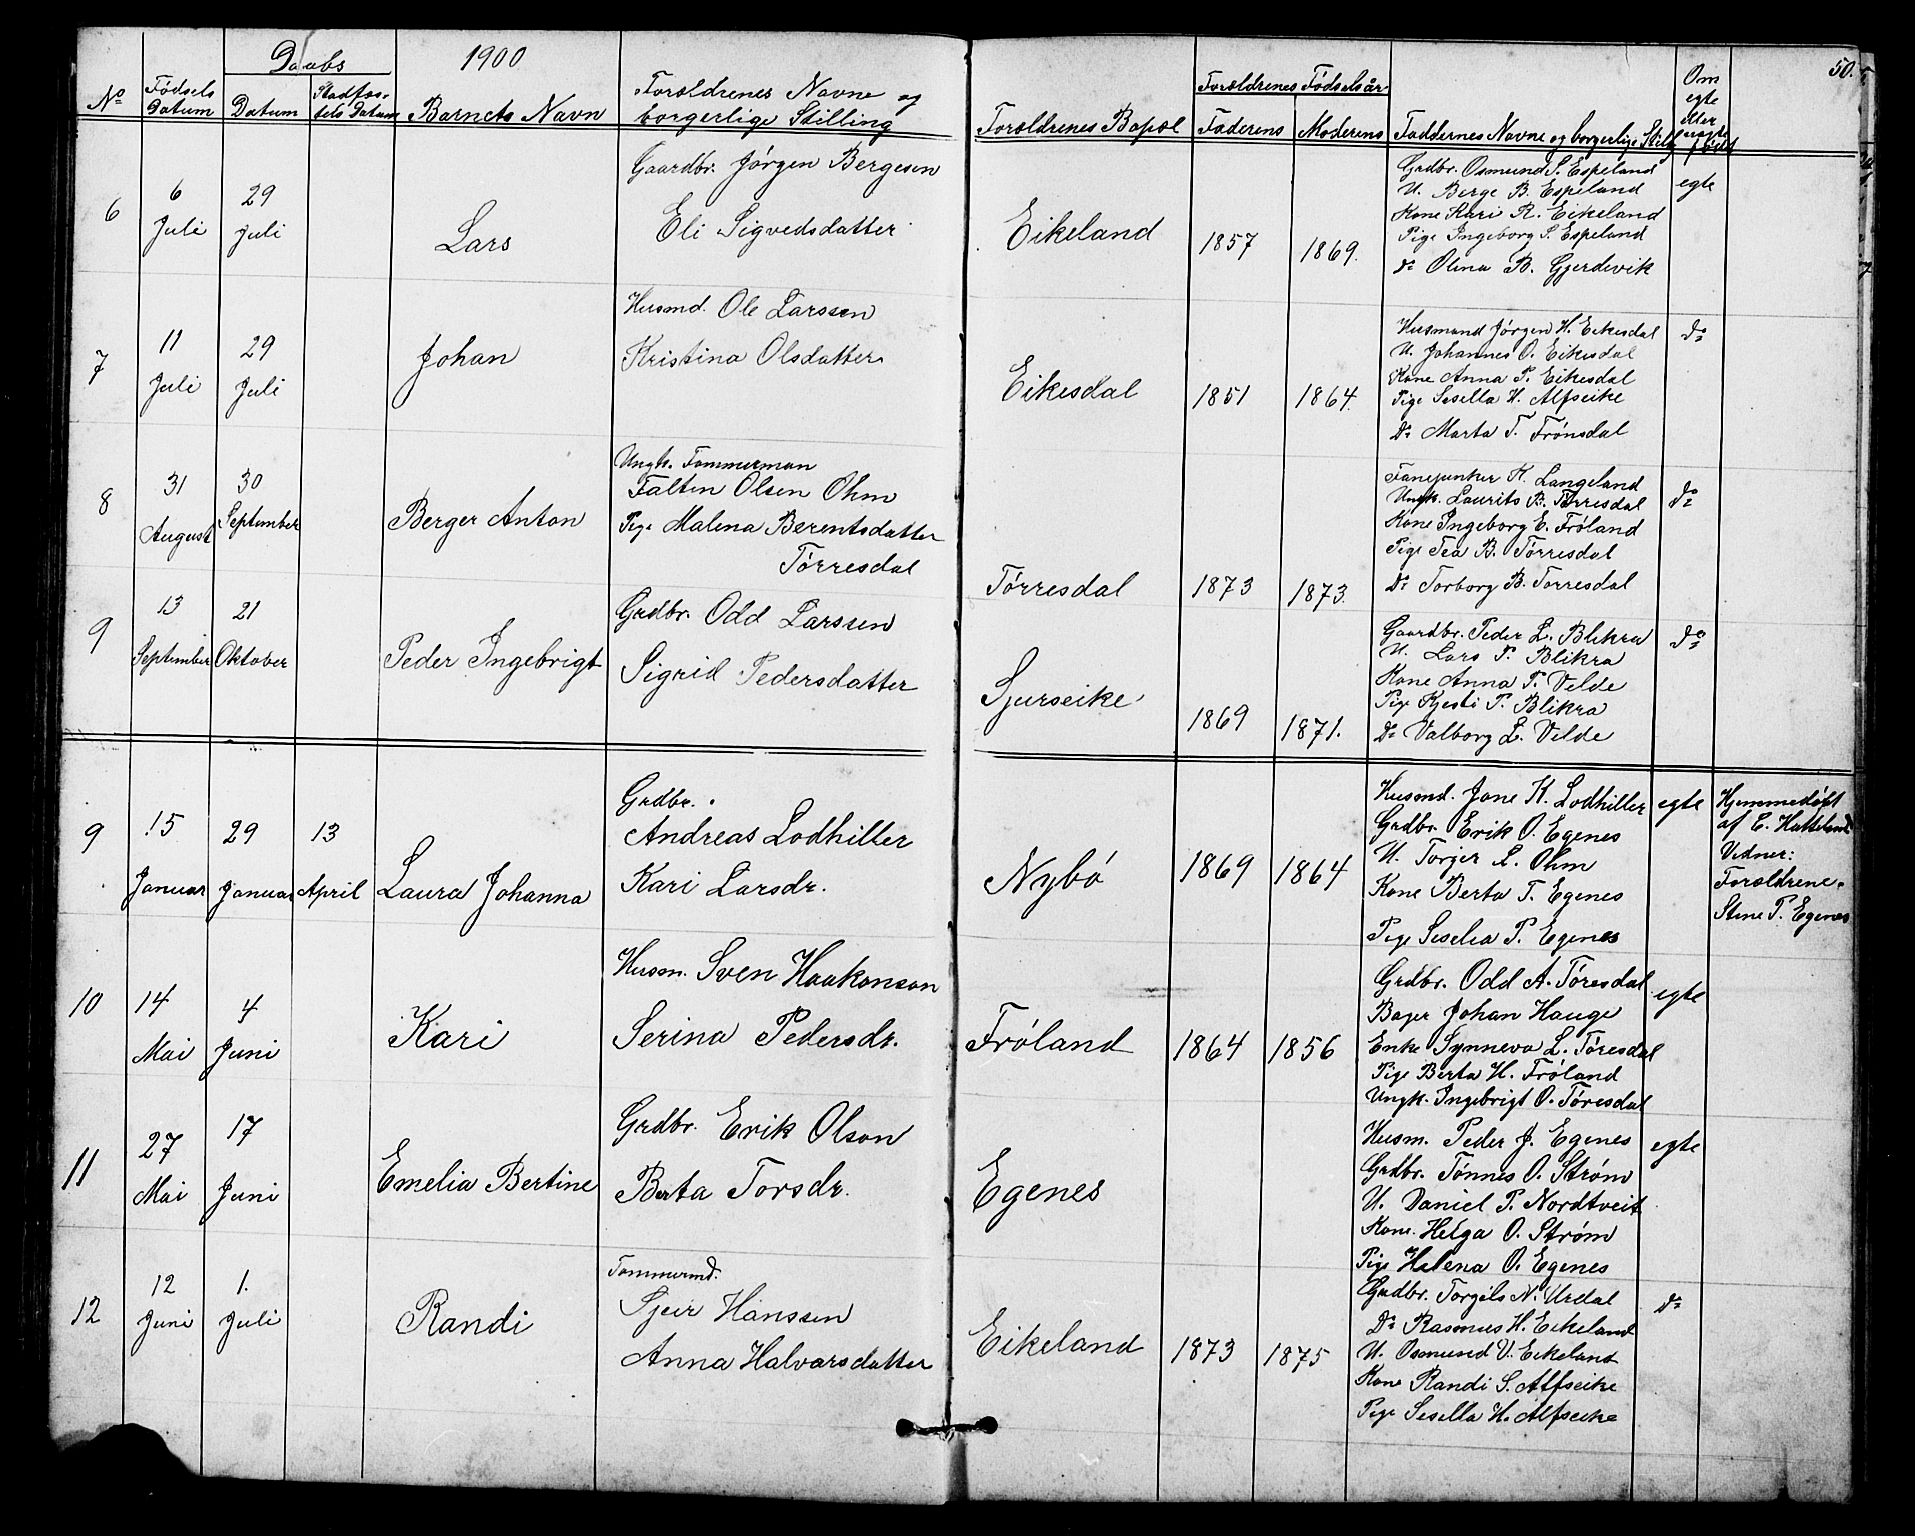 1900
50.
No
Fødsels Datum
Daabs
Datum
Stadfæstels Datum
Barnets Navn
Forældrenes Navne og borgerlige Stilling
Forældrenes Bopæl
Forældrenes Fødselsår
Faderens
Moderens
Faddernes Navne og borgerlige Still.
Om egte eller uegte født
6
6 Juli
29 Juli
Lars
Gaardbr. Jørgen Bergesen
Eli Sigvedsdatter
Eikeland
1857
1869.
Grdbr. Osmund S. Espeland
U. Berge B. Espeland
Kone Kari R. Eikeland
Pige Ingeborg S. Espeland
do Olina B. Gjerdevik
egte
7
11 Juli
29 Juli
Johan
Husmd. Ole Larssen
Kristina Olsdatter
Eikesdal
1851
1864.
Husmand Jørgen H. Eikesdal
U. Johannes O. Eikesdal
Kone Anna P. Eikesdal
Pige Sesella H. Alfseike
Do Marta T. Frønsdal
do
8
31 August
30 September
Berger Anton
Ungk. Tømmerman
Falten Olsen Ohm
Pige Malena Berentsdatter
Tørresdal
Tørresdal
1873
1873.
Fanejunker K. Langeland
Ungk. Laurits B. Tørresdal
Kone Ingeborg E. Frøland
Pige Tea B. Tørresdal
Do Torborg B. Tørresdal
do
9
13 September
21 Oktober
Peder Ingebrigt
Grdbr. Odd Larssen
Sigrid Pedersdatter
Sjurseike
1869
1871.
Gaardbr. Peder L. Blikra
U. Lars P. Blikra
Kone Anna T. Velde
Pige Kjesti P. Blikra
Do Valborg L. Velde
do
9
15 Januar
29 Januar
13 April
Laura Johanna
Grdbr.
Andreas Lodhiller
Kari Larsdr.
Nybø
1869
1864
Husmd. Jone K. Lodhiller
Grdbr. Erik O. Egenes
U. Torjer L. Ohm
Kone Berta T. Egenes
Pige Seselia P. Egenes
egte
Hjemmedøbt
af E. Hatteland
Vidner:
Forældrene.
Stine P. Egenes
10
14 Mai
4 Juni
Kari
Husm. Sven Haakonson
Serina Pedersdr.
Frøland
1864
1856
Grdbr. Odd A. Tøresdal
Bager Johan Hauge
Enke Synneva L. Tøresdal
Pige Berta H. Frøland
Ungk. Ingebrigt O. Tøresdal
egte
11
27 Mai
17 Juni
Emelia Bertine
Grdbr. Erik Olson
Berta Torsdr.
Egenes
Husm. Peder J. Egenes
Grdbr. Tønnes O. Strøm
U. Daniel P. Nordtveit
Kone. Helga O. Strøm
Pige Helena O. Egenes
egte
12
12 Juni
1. Juli
Randi
Tømmermd.
Sjeir Hanssen
Anna Halvarsdatter
Eikeland
1873
1875
Grdbr. Torgils N. Urdal
Do Rasmus H. Eikeland
U. Osmund V. Eikeland
Kone Randi S. Alfseike
Pige Sesella H. Alfseike
do